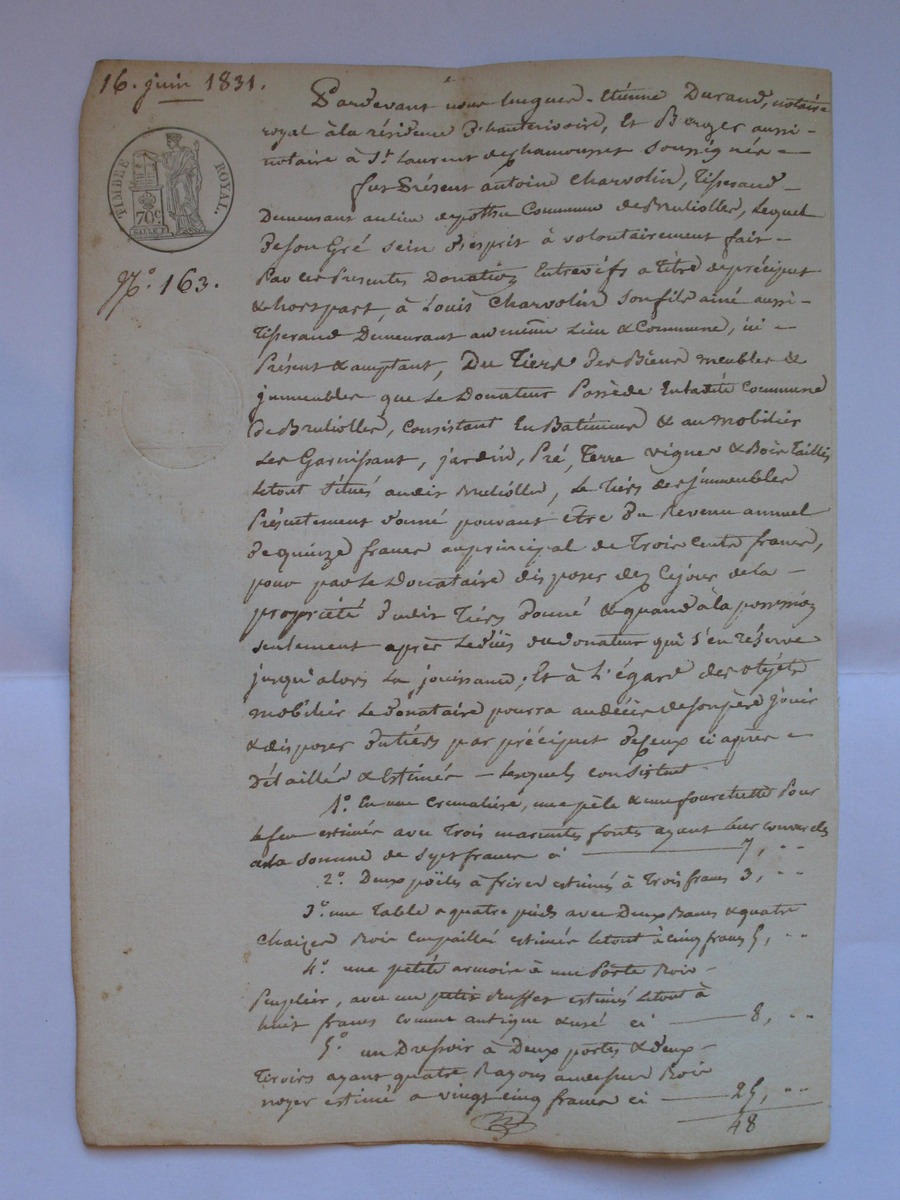 16. juin 1831.
TIMBRE ROYAL.
70c.
N.o 163.
Pardevant nous hugues-Etienne Durand, notaire
royal à la résidence d'hauterivoire, Et Berger aussi-
notaire à St. Laurent de chamousset soussignés =
fut Présent antoine charvolin, Tisserand-
Demeurant au lieu de Commune de Brulliolles, Lequel
De son Gré sein d'esprit à volontairement fait -
Par ces Presentes Donation Entrevifs a titre de préciput
& hors part, à Louis Charvolin son fils ainé aussi-
Tisserand Demeurant au même Lieu & Commune, ici =
Présent & acceptant, Du Tiers Des Biens meubles &
jmmeubles que Le Donateur Possède En ladite Commune
De Brulliolles, Consistant En Batiments & au mobilier
Les Garnissant, jardin, Pré, Terre vignes & Bois Taillis
Le tout Situés audit Brulliolles, Le Tiers des jmmeubles
Présentement donné pouvant être du Revenu annuel
De quinze francs au principal de Trois Cents francs,
pour par Le Donataire disposer dez Cejour de la -
propriété dudit Tiers Donné & quand à la possession
seulement après Le décès du donateur qui s'en réserve
jusqu'alors La jouissance; Et à L'égard des objets
mobilier Le donataire pourra au décès de son père jouir
& disposer du tiers par préciput De Ceux ci après =
Détaillés & Estimés - Lesquels consistent.
1.o En une Cremalière, une pèle & une fourchette Pour
le feu estimés avec Trois marmites fontes ayant leur couvercles
a la somme de sept francs ci 7, "
2.o Deux poëles à frire estimés à Trois francs 3, "
3.o une Table a quatre pieds avec Deux Bancs & quatre
Chaizes Bois Empaillé estimés Le tout à cinq francs 5, "
4.o une petite armoir à une Porte Bois-
Peuplier, avec un petit Buffet estimés Le tout à
huit francs comme antique & usé ci 8, "
5.o un Dressoir à Deux portes & deux-
Tiroirs ayant quatre Rayons au dessus Bois
noyer estimé a vingt cinq francs ci 25, "
48